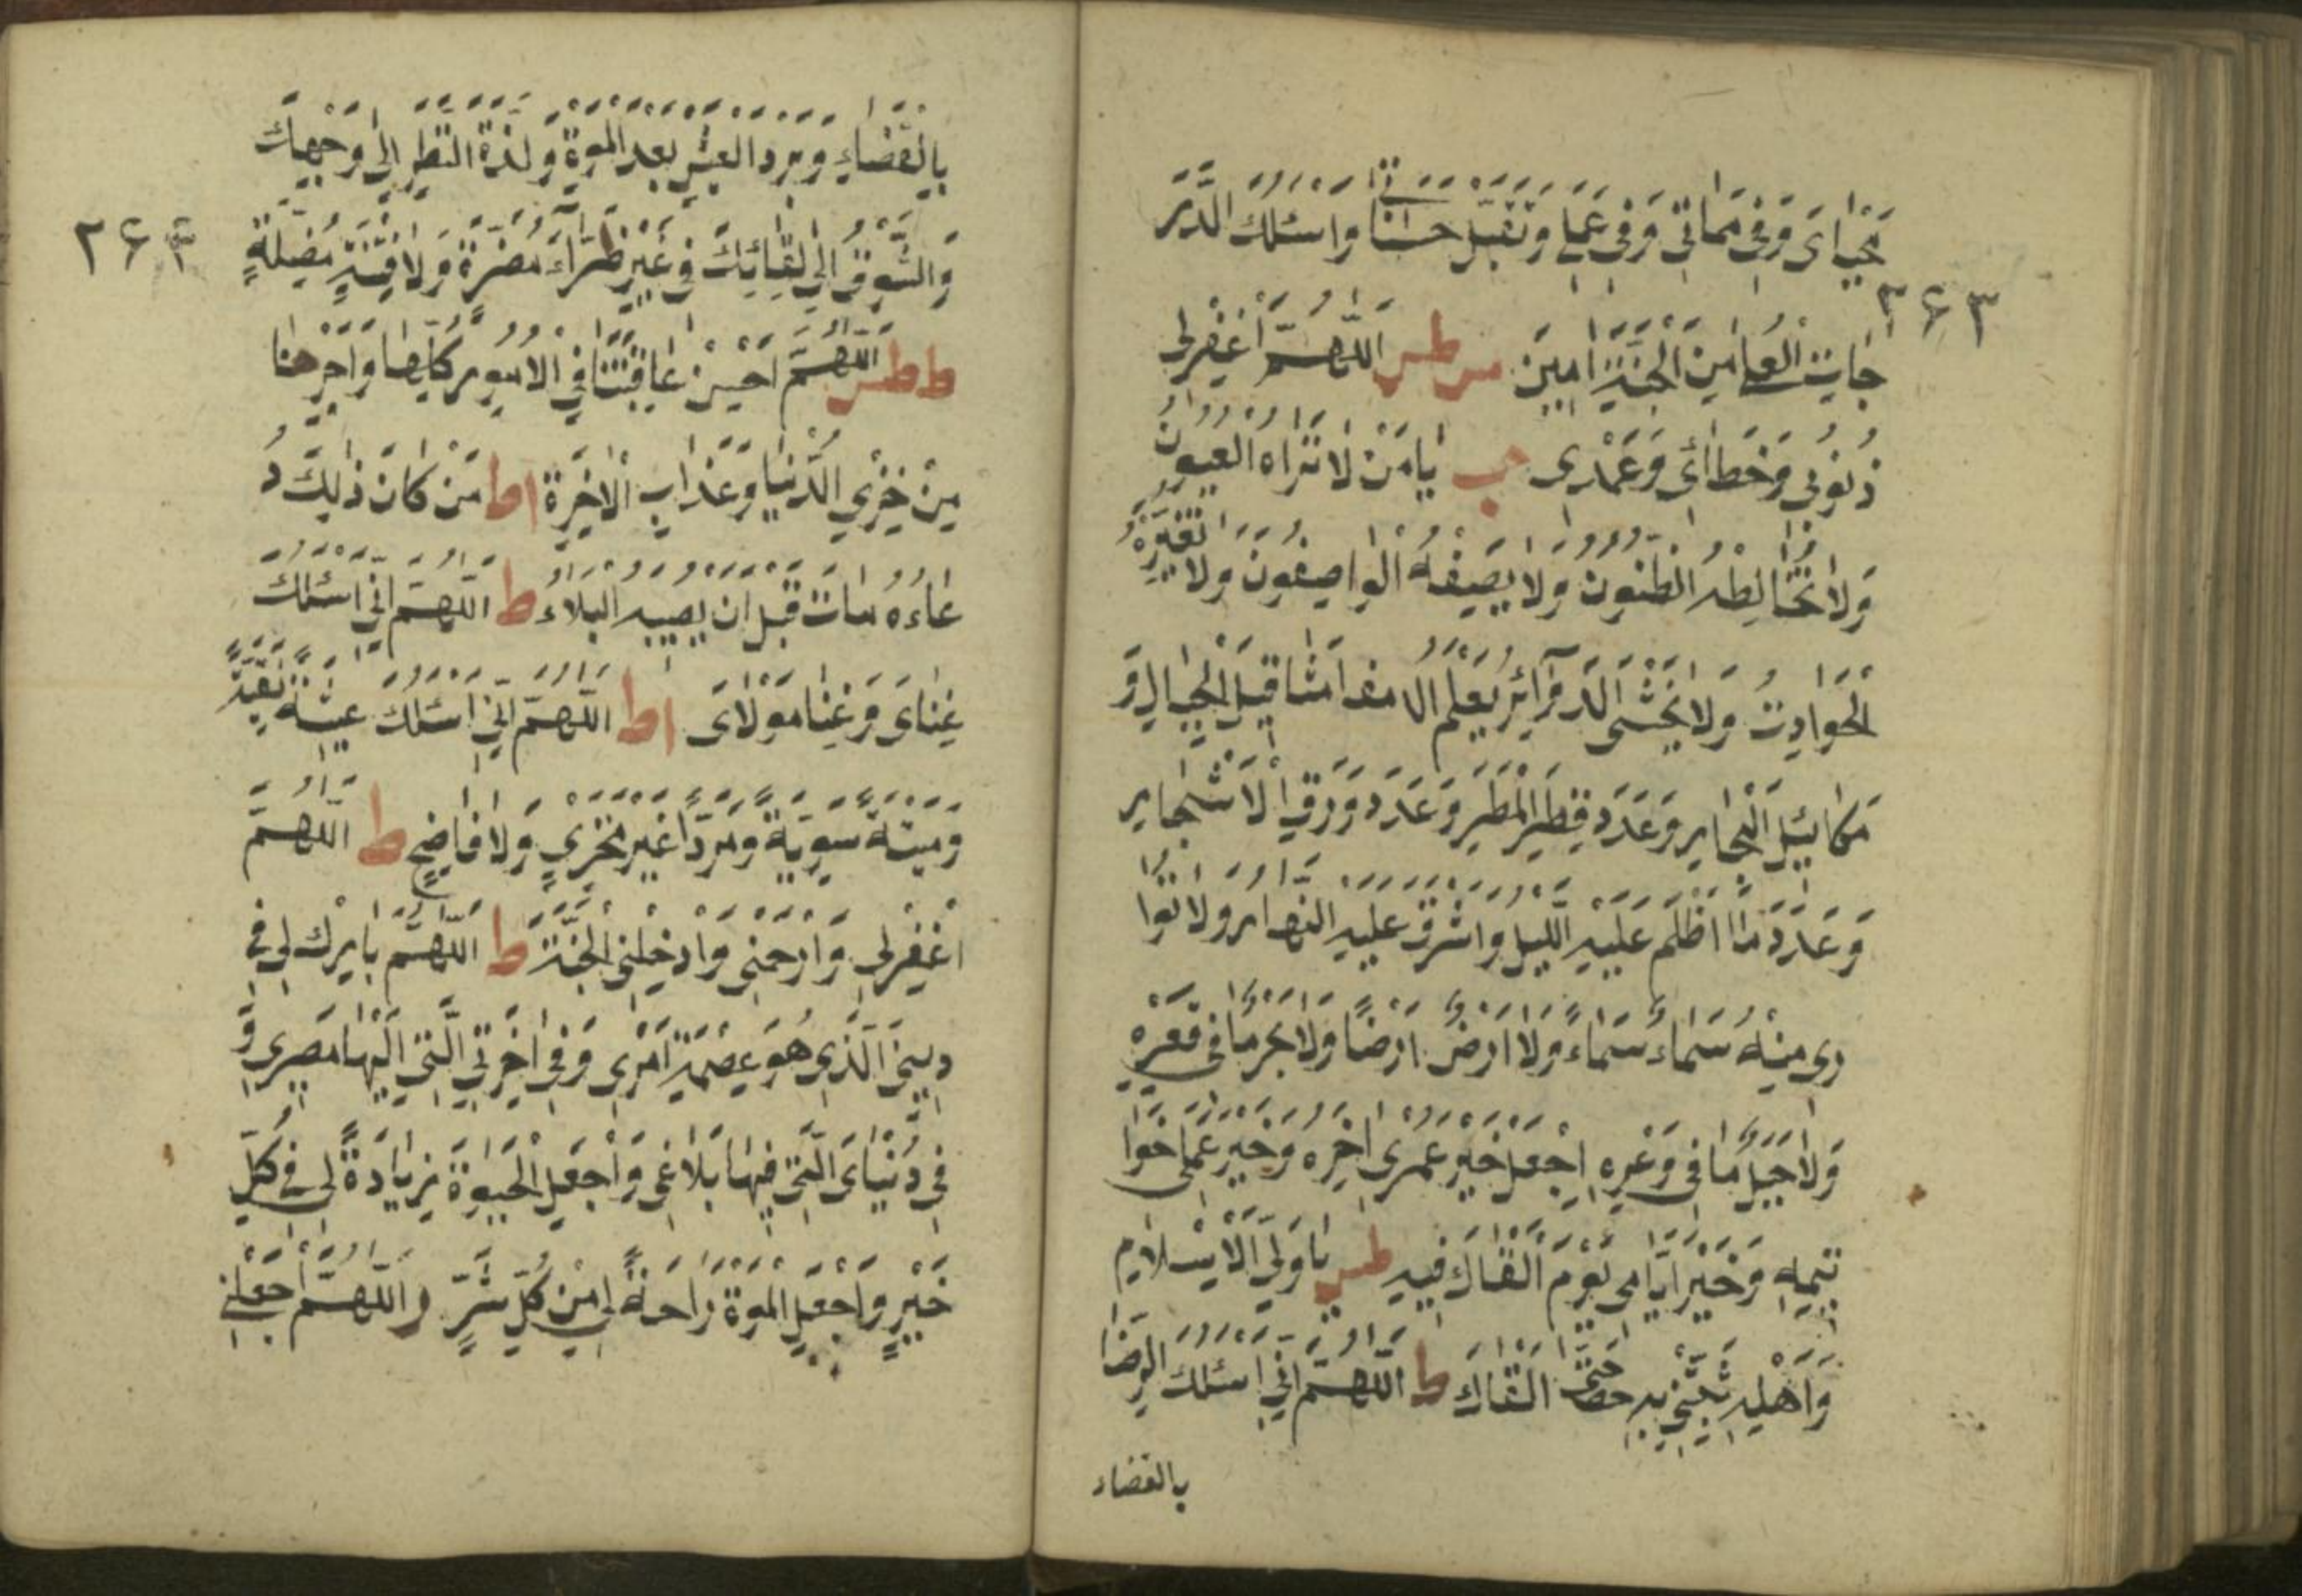 مَحْيَاىَ وَفِى مَمَاتِى وَفِى عَمَلِى وَتَقَبَّل حَسَنَاتِى وَاَسْئَلُكَ الدَّرَ
۲۶۳
جَاتِ الْعُلَى مِنَ الْجَنَّةِ اٰمِينَ مس طس اَللّٰهُمَّ اغْفِرْلِى
ذُنُوبِى وَخَطَائِى وَعَمْدِى حب يَا مَنْ لَا تَرَاهُ الْعُيُونُ
وَلَا تُخَالِطُهُ الظُّنُونُ وَلَا يَصِفُهُ الْوَاصِفُونَ وَلَا تُغَيِّرُهُ
الْحَوَادِثُ وَلَا يَخْشَى الدَّوَآئِرَ يَعْلَمُ مَثَاقِيلَ الْجِبَالِ وَ
مَكَائِيلَ الْبِحَارِ وَعَدَدَ قَطْرِ الْمَطَرِ وَعَدَدَ وَرَقِ الْاَشْجَارِ
وَعَدَدَ مَا اَظْلَمَ عَلَيْهِ اللَّيْلُ وَاَشْرَقَ عَلَيْهِ النَّهَارُ وَلَا تُوَا
رِى مِنْهُ سَمَاءٌ سَمَاءً وَلَا اَرْضٌ اَرْضًا وَلَا بَحْرٌ مَا فِى قَعْرِهِ
وَلَا جَبَلٌ مَا فِى وَعْرِهِ اِجْعَلْ خَيْرَ عُمْرِى اٰخِرَهُ وَخَيْرَ عَمَلِى خَوَا
تِيمَهُ وَخَيْرَ اَيَّامِى يَوْمَ اَلْقَاكَ فِيهِ طس يَا وَلِىَّ الْاِسْلَامِ
وَاَهْلِهِ ثَبِّتْنِى بِهِ حَتَّى اَلْقَاكَ ط اَللّٰهُمَّ اِنِّى اَسْئَلُكَ الرِّضَا
بالقضاء
بِالْقَضَاءِ وَبَرْدَ الْعَيْشِ بَعْدَ الْمَوْةِ وَلَذَّةَ النَّظَرِ اِلَى وَجْهِكَ
وَالشَّوْقَ اِلَى لِقَائِكَ فِى غَيْرِ ضَرَّآءَ مُضِرَّةٍ وَلَا فِتْنَةٍ مُضِلَّةٍ
۲۶۴
ط طس اَللّٰهُمَّ اَحْسِنْ عَاقِبَتَنَا فِى الْاُمُورِ كُلِّهَا وَاَجِرْنَا
مِنْ خِزْىِ الدُّنْيَا وَعَذَابِ الْاٰخِرَةِ اط مَنْ كَانَ ذٰلِكَ دُ
عَاءَهُ مَاتَ قَبْلَ اَنْ يُصِيبَهُ الْبَلَاءُ ط اَللّٰهُمَّ اِنِّى اَسْئَلُكَ
غِنَاىَ وَغِنَا مَوْلَاىَ اط اَللّٰهُمَّ اِنِّى اَسْئَلُكَ عِيشَةً نَقِيَّةً
وَمِيتَةً سَوِيَّةً وَمَرَدًّا غَيْرَ مُخْزِىٍ وَلَا فَاضِحٍ ط اَللّٰهُمَّ
اغْفِرْلِى وَارْحَمْنِى وَاَدْخِلْنِى الْجَنَّةَ ط اَللّٰهُمَّ بَارِكْ لِى فِى
دِينِىَ الَّذِى هُوَ عِصْمَةُ اَمْرِى وَفِى اٰخِرَتِىَ الَّتِى اِلَيْهَا مَصِيرِى وَ
فِى دُنْيَاىَ الَّتِى فِيهَا بَلَاغِى وَاجْعَلِ الْحَيٰوةَ زِيَادَةً لِى فِى كُلِّ
خَيْرٍ وَاجْعَلِ الْمَوْةَ رَاحَةً لِى مِنْ كُلِّ شَرٍّ ر اَللّٰهُمَّ اجْعَلْنِى